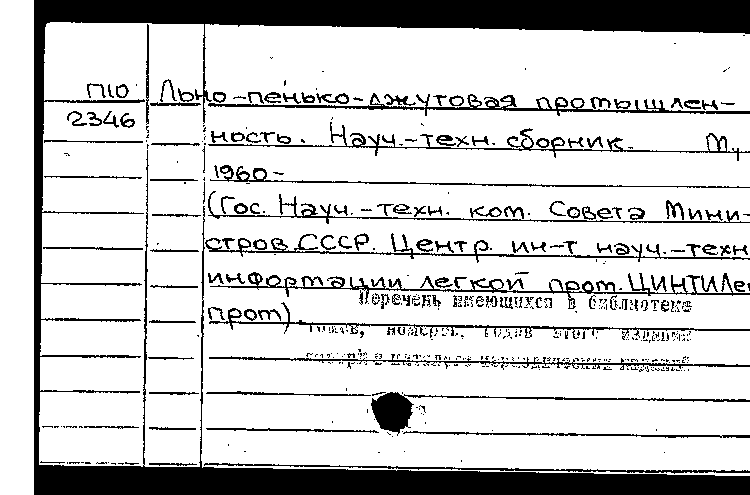 П10 Льно-пенько-джутовая промышлен-
2346 ность. Науч.-техн. сборник. М.,
1960-
(Гос. Науч.-техн. ком. Совета Мини-
стров СССР. Центр. ин-т науч.-техн
информации легкой пром. ЦИНТИЛег
пром).
Перечень имеющихся в библиотеке
томов, номеров, годов этого издания
смотри в каталоге периодических изданий